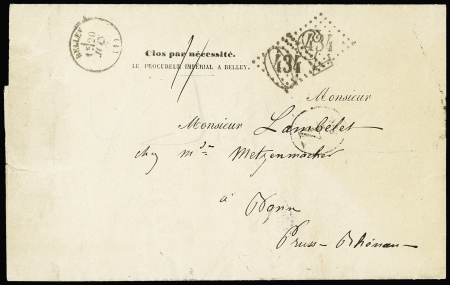 BELLEY (1)
20
434
434
Clos par nécessité.
LE PROCUREUR IMPÉRIAL A BELLEY.
Monsieur
Monsieur Lambelet
chez Metzenmacher
à
Pruss-Rhénan